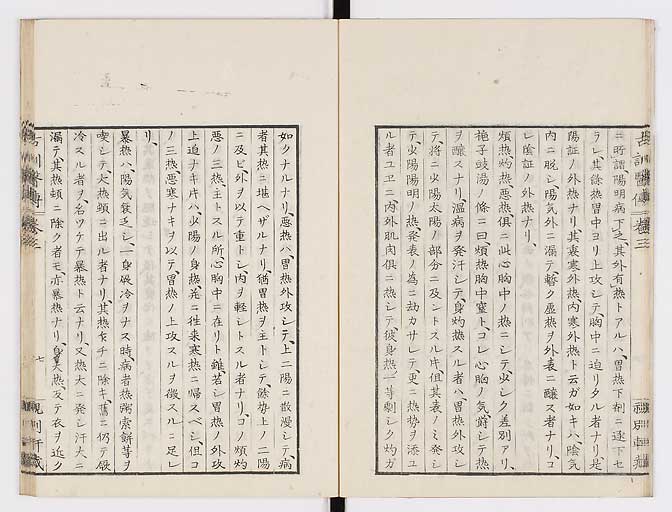 ニ所謂陽明病下之、其外有熱トアルハ、胃熱下剤ニ逐下セ
ラレ、其餘熱胃中ヨリ上攻シテ、胸中ニ迫リタル者ナリ、是
陽証ノ外熱ナリ、其裏寒外熱、内寒外熱ト云ガ如キハ、陰気
内ニ脱シ、陽気外ニ漏テ、暫ク虚熱ヲ外表ニ醸ス者ナリ、コ
レ陰証ノ外熱ナリ、
煩熱灼熱悪熱俱ニ此心胸中ノ熱ニシテ、少シク差別アリ、
梔子豉湯ノ條ニ曰煩熱胸中窒ト、コレ心胸ノ気鬱シテ熱
ヲ醸スナリ、温病ヲ発汗シテ、身灼熱スル者ハ、胃熱外攻シ
テ、将ニ少陽太陽ノ部分ニ及ントスル片、但其表ノミ発シ
テ、少陽陽明ノ熱、発表ノ為ニ劫カサレテ、更ニ熱勢ヲ添ユ
ル者ユヱニ、内外肌肉俱ニ熱シテ、彼身熱一等劇シク灼ガ
如クナルナリ、悪熱ハ、胃熱外攻シテ、上二陽ニ散漫シテ、病
者其熱ニ堪ヘザルナリ、猶胃熱ヲ主トシテ、餘勢上ノ二陽
ニ及ビ、外ヲ以テ重トシ、内ヲ軽シトスル者ナリ、コノ煩灼
悪ノ三熱、主トスル所心胸中ニ在リト雖、若シ胃熱ノ外攻
上迫ナキ片ハ、少陽ノ身熱、差ニ往来寒熱ニ帰スベシ、但コ
ノ三熱、悪寒ナキヲ以テ、胃熱ノ上攻スルヲ徴スルニ足レ
リ、
暴熱ハ、陽気衰乏シ、一身厥冷ヲナス時、病者熱粥索餅等ヲ
喫シテ、大熱頓ニ出ル者ナリ、其熱セチニ除キ、舊ニ仍テ厥
冷スル者ヲ、名ツケテ暴熱ト云ナリ、又熱大ニ発シ、汗大ニ
漏テ、其熱頓ニ除ク者モ亦暴熱ナリ、身大熱、反テ衣ヲ近ク
七